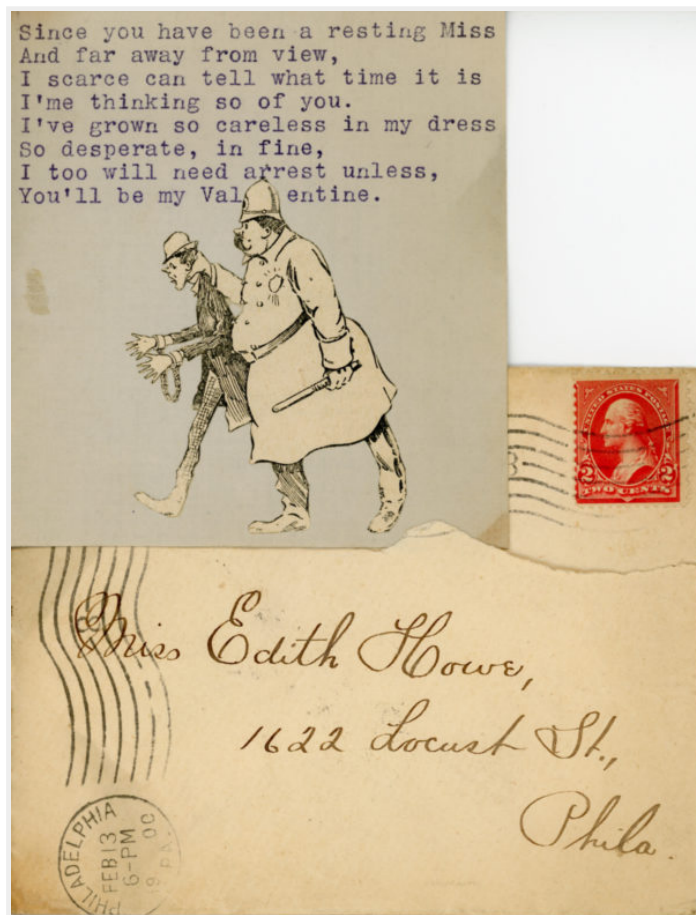 Since you have been a resting Miss
And far away from view,
I scarce can tell what time it is
I'me thinking so of you.
I've grown so careless in my dress
So desperate, in fine,
I too will need arrest unless,
You'll be my Val entine.
UNITED STATES POSTAGE
2 2
TWO CENTS
Miss Edith Howe,
1622 Locust St.,
Phila.
PHILADELPHIA
FEB 13
6-PM
19 00
PA.